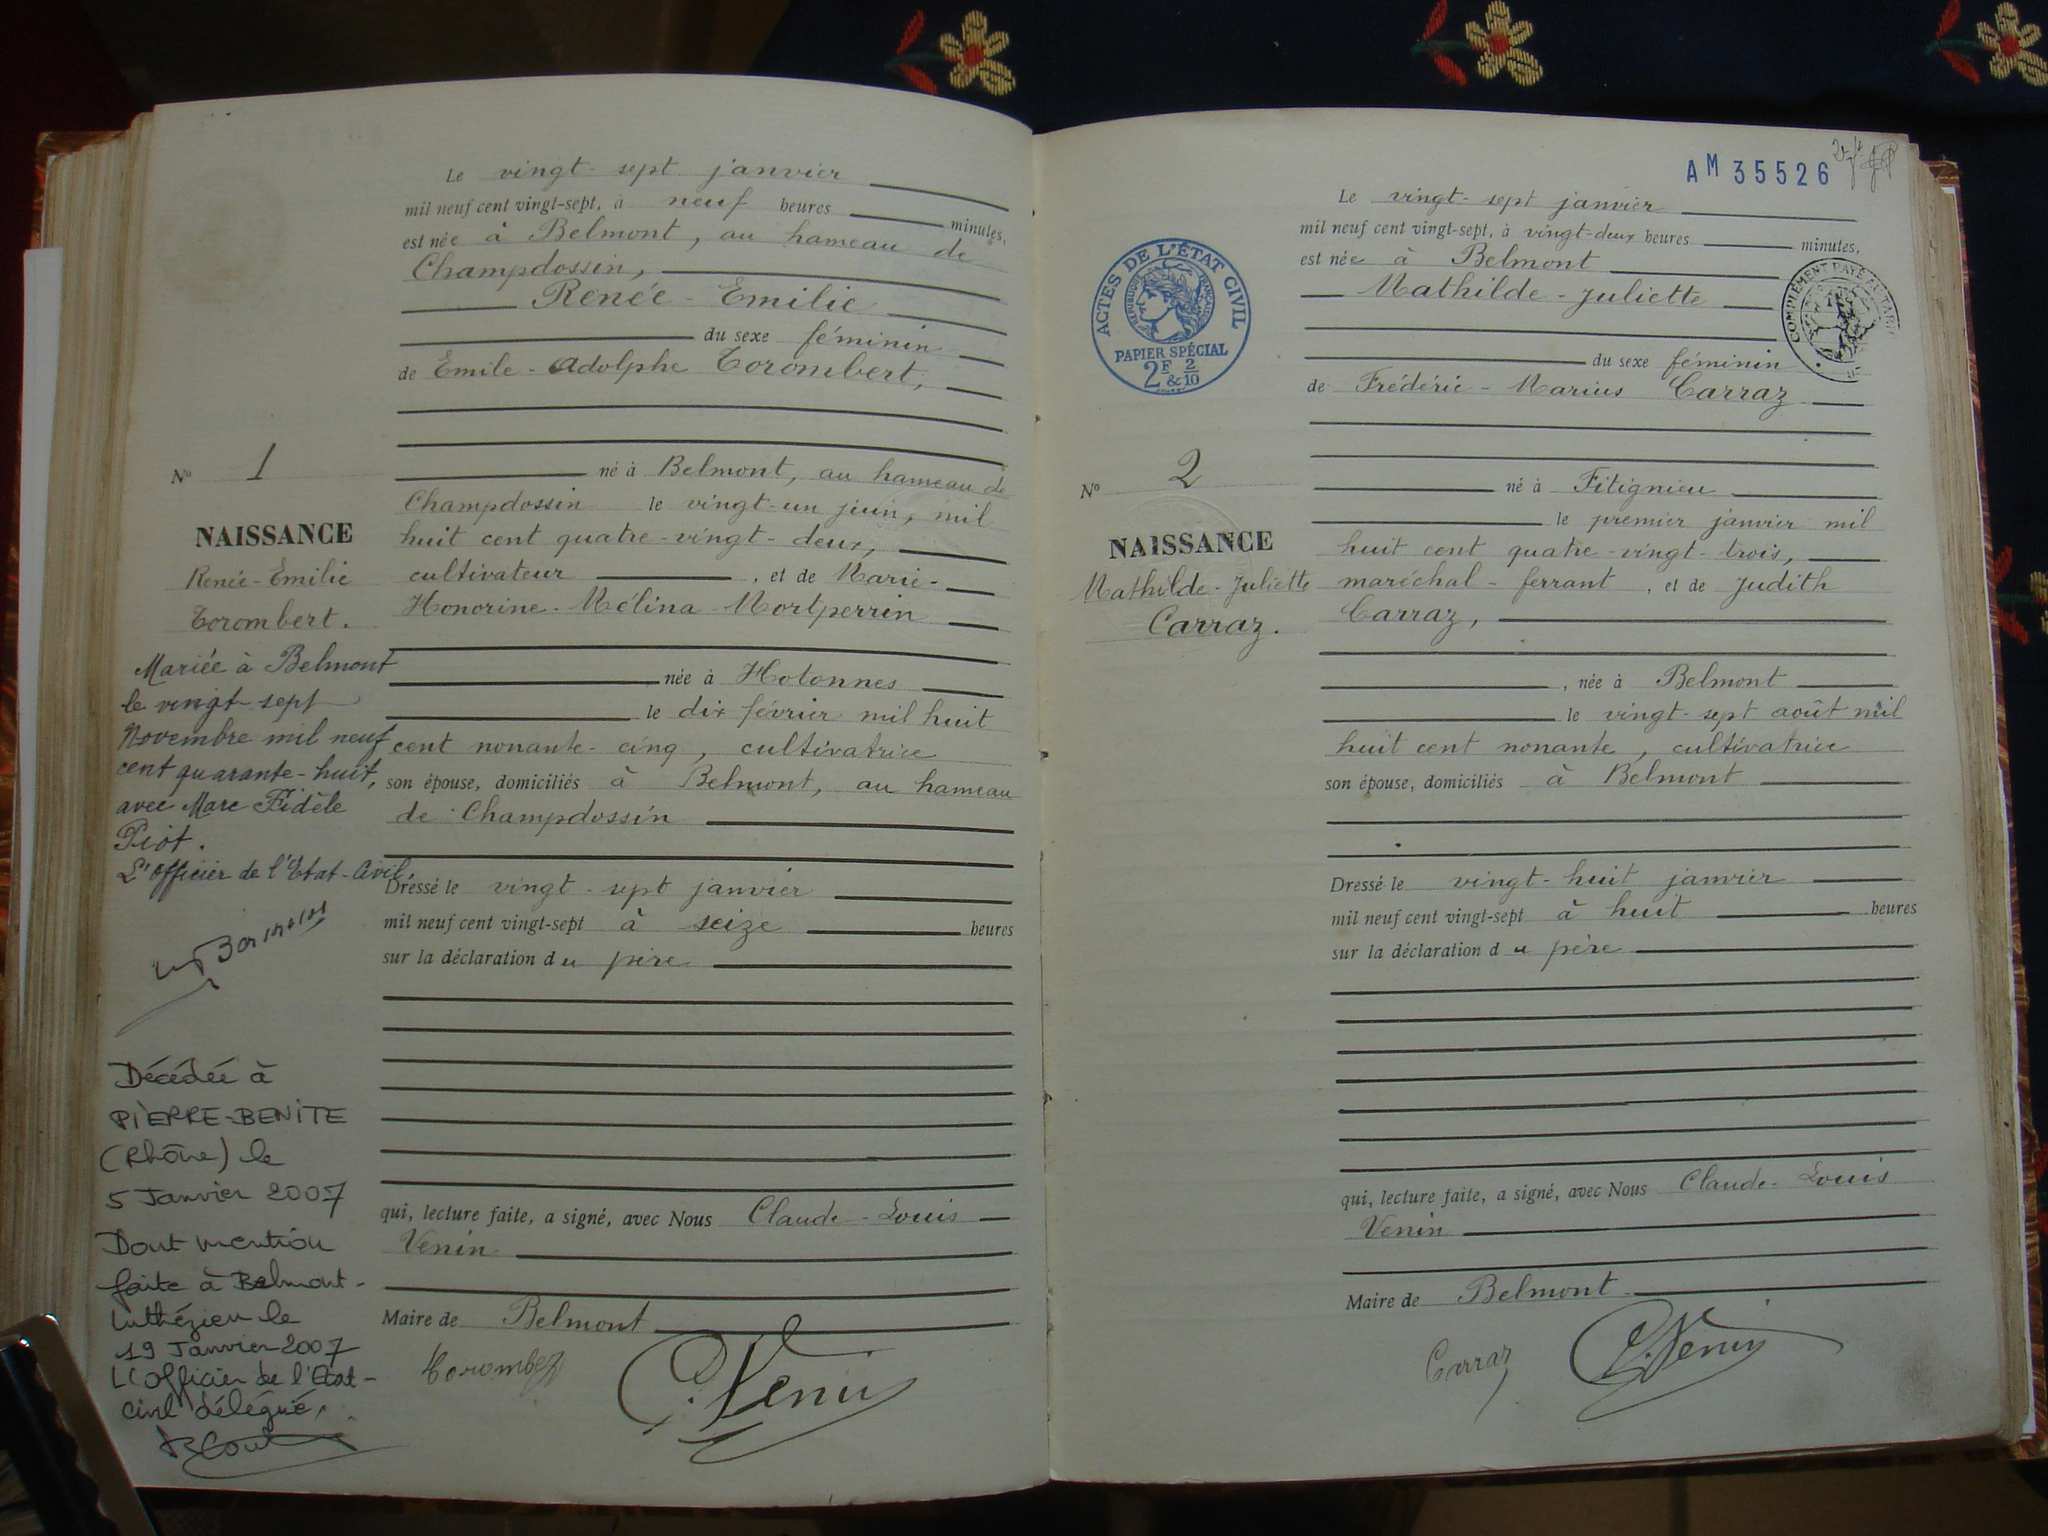 Le vingt-sept janvier
mil neuf cent vingt-sept, à neuf heures minutes,
est née à Belmont, au hameau de
Champdossin,
Renée-Emilie
du sexe féminin
de Emile-Adolphe Torombert,
né à Belmont, au hameau de
Champdossin le vingt-un juin, mil
huit cent quatre-vingt-deux,
cultivateur, et de Marie-
Honorine-Mélina Mortperrin
née à Hotonnes
le dix février mil huit
cent nonante-cinq, cultivatrice
son épouse, domiciliés à Belmont, au hameau
de Champdossin
Dressé le vingt-sept janvier
mil neuf cent vingt-sept à seize heures
sur la déclaration du père
qui, lecture faite, a signé, avec Nous Claude-Louis
Venin
Maire de Belmont
Torombert
C. Venin
No 1
NAISSANCE
Renée-Emilie
Torombert.
Mariée à Belmont
le vingt-sept
Novembre mil neuf
cent quarante-huit,
avec Marc Fidèle
Piot.
L'Officier de l'Etat-Civil,
Décédée à
PIERRE-BENITE
(Rhône) le
5 Janvier 2007
Dont mention
faite à Belmont-
Luthézieu le
19 Janvier 2007
L'Officier de l'Etat-
civil délégué,
AM 35526
Le vingt-sept janvier
mil neuf cent vingt-sept, à vingt-deux heures minutes,
est née à Belmont
Mathilde-Juliette
du sexe féminin
de Frédéric-Marius Carraz
né à Fitignieu
le premier janvier mil
huit cent quatre-vingt-trois,
maréchal-ferrant, et de Judith
Carraz,
, née à Belmont
le vingt-sept août mil
huit cent nonante, cultivatrice
son épouse, domiciliés à Belmont
Dressé le vingt-huit janvier
mil neuf cent vingt-sept à huit heures
sur la déclaration du père
qui, lecture faite, a signé, avec Nous Claude-Louis
Venin
Maire de Belmont
Carraz
C. Venin
ACTES DE L'ÉTAT CIVIL
RÉPUBLIQUE FRANÇAISE
PAPIER SPÉCIAL
2F & 2/10
COMPLÉMENT PAYÉ
No 2
NAISSANCE
Mathilde-Juliette
Carraz.